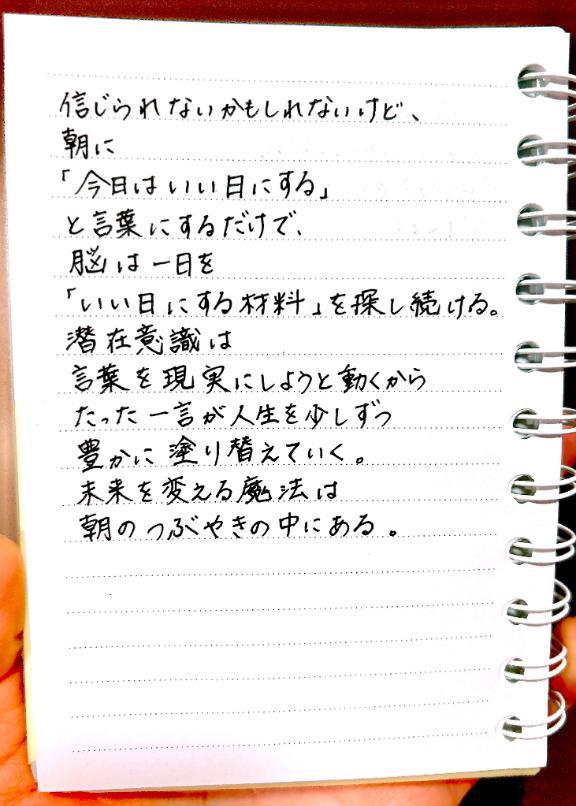 信じられないかもしれないけど、
朝に
「今日はいい日にする」
と言葉にするだけで、
脳は一日を
「いい日にする材料」を探し続ける。
潜在意識は
言葉を現実にしようと動くから
たった一言が人生を少しずつ
豊かに塗り替えていく。
未来を変える魔法は
朝のつぶやきの中にある。